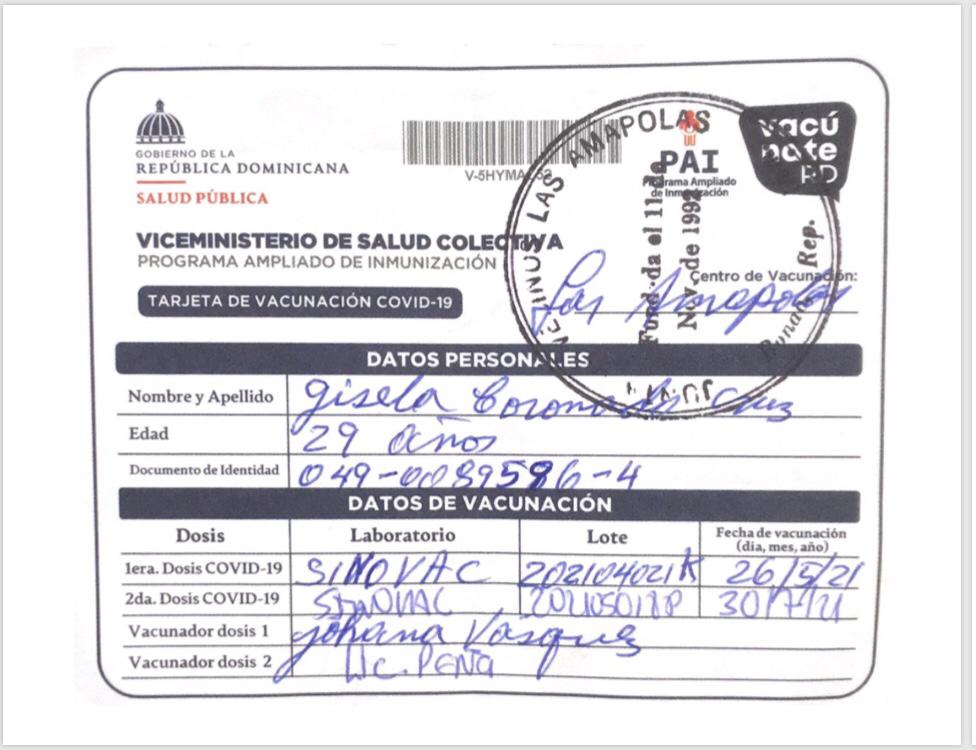 GOBIERNO DE LA
REPÚBLICA DOMINICANA
SALUD PÚBLICA
V-5HYMA
PAI
Programa Ampliado
de Inmunización
vacú
nate
RD
LAS AMAPOLAS
Nov. de 1992
Rep.
VICEMINISTERIO DE SALUD COLECTIVA
PROGRAMA AMPLIADO DE INMUNIZACIÓN
Centro de Vacunación:
Las Amapolas
TARJETA DE VACUNACIÓN COVID-19
DATOS PERSONALES
Nombre y Apellido gisela Coronado Cruz
Edad 29 años
Documento de Identidad 049-0089586-4
DATOS DE VACUNACIÓN
Dosis Laboratorio Lote Fecha de vacunación
(día, mes, año)
1era. Dosis COVID-19 SINOVAC 202104021K 26/5/21
2da. Dosis COVID-19 SINOVAC 30/7/21
Vacunador dosis 1 Johana Vasquez
Vacunador dosis 2 Lic. PEÑA